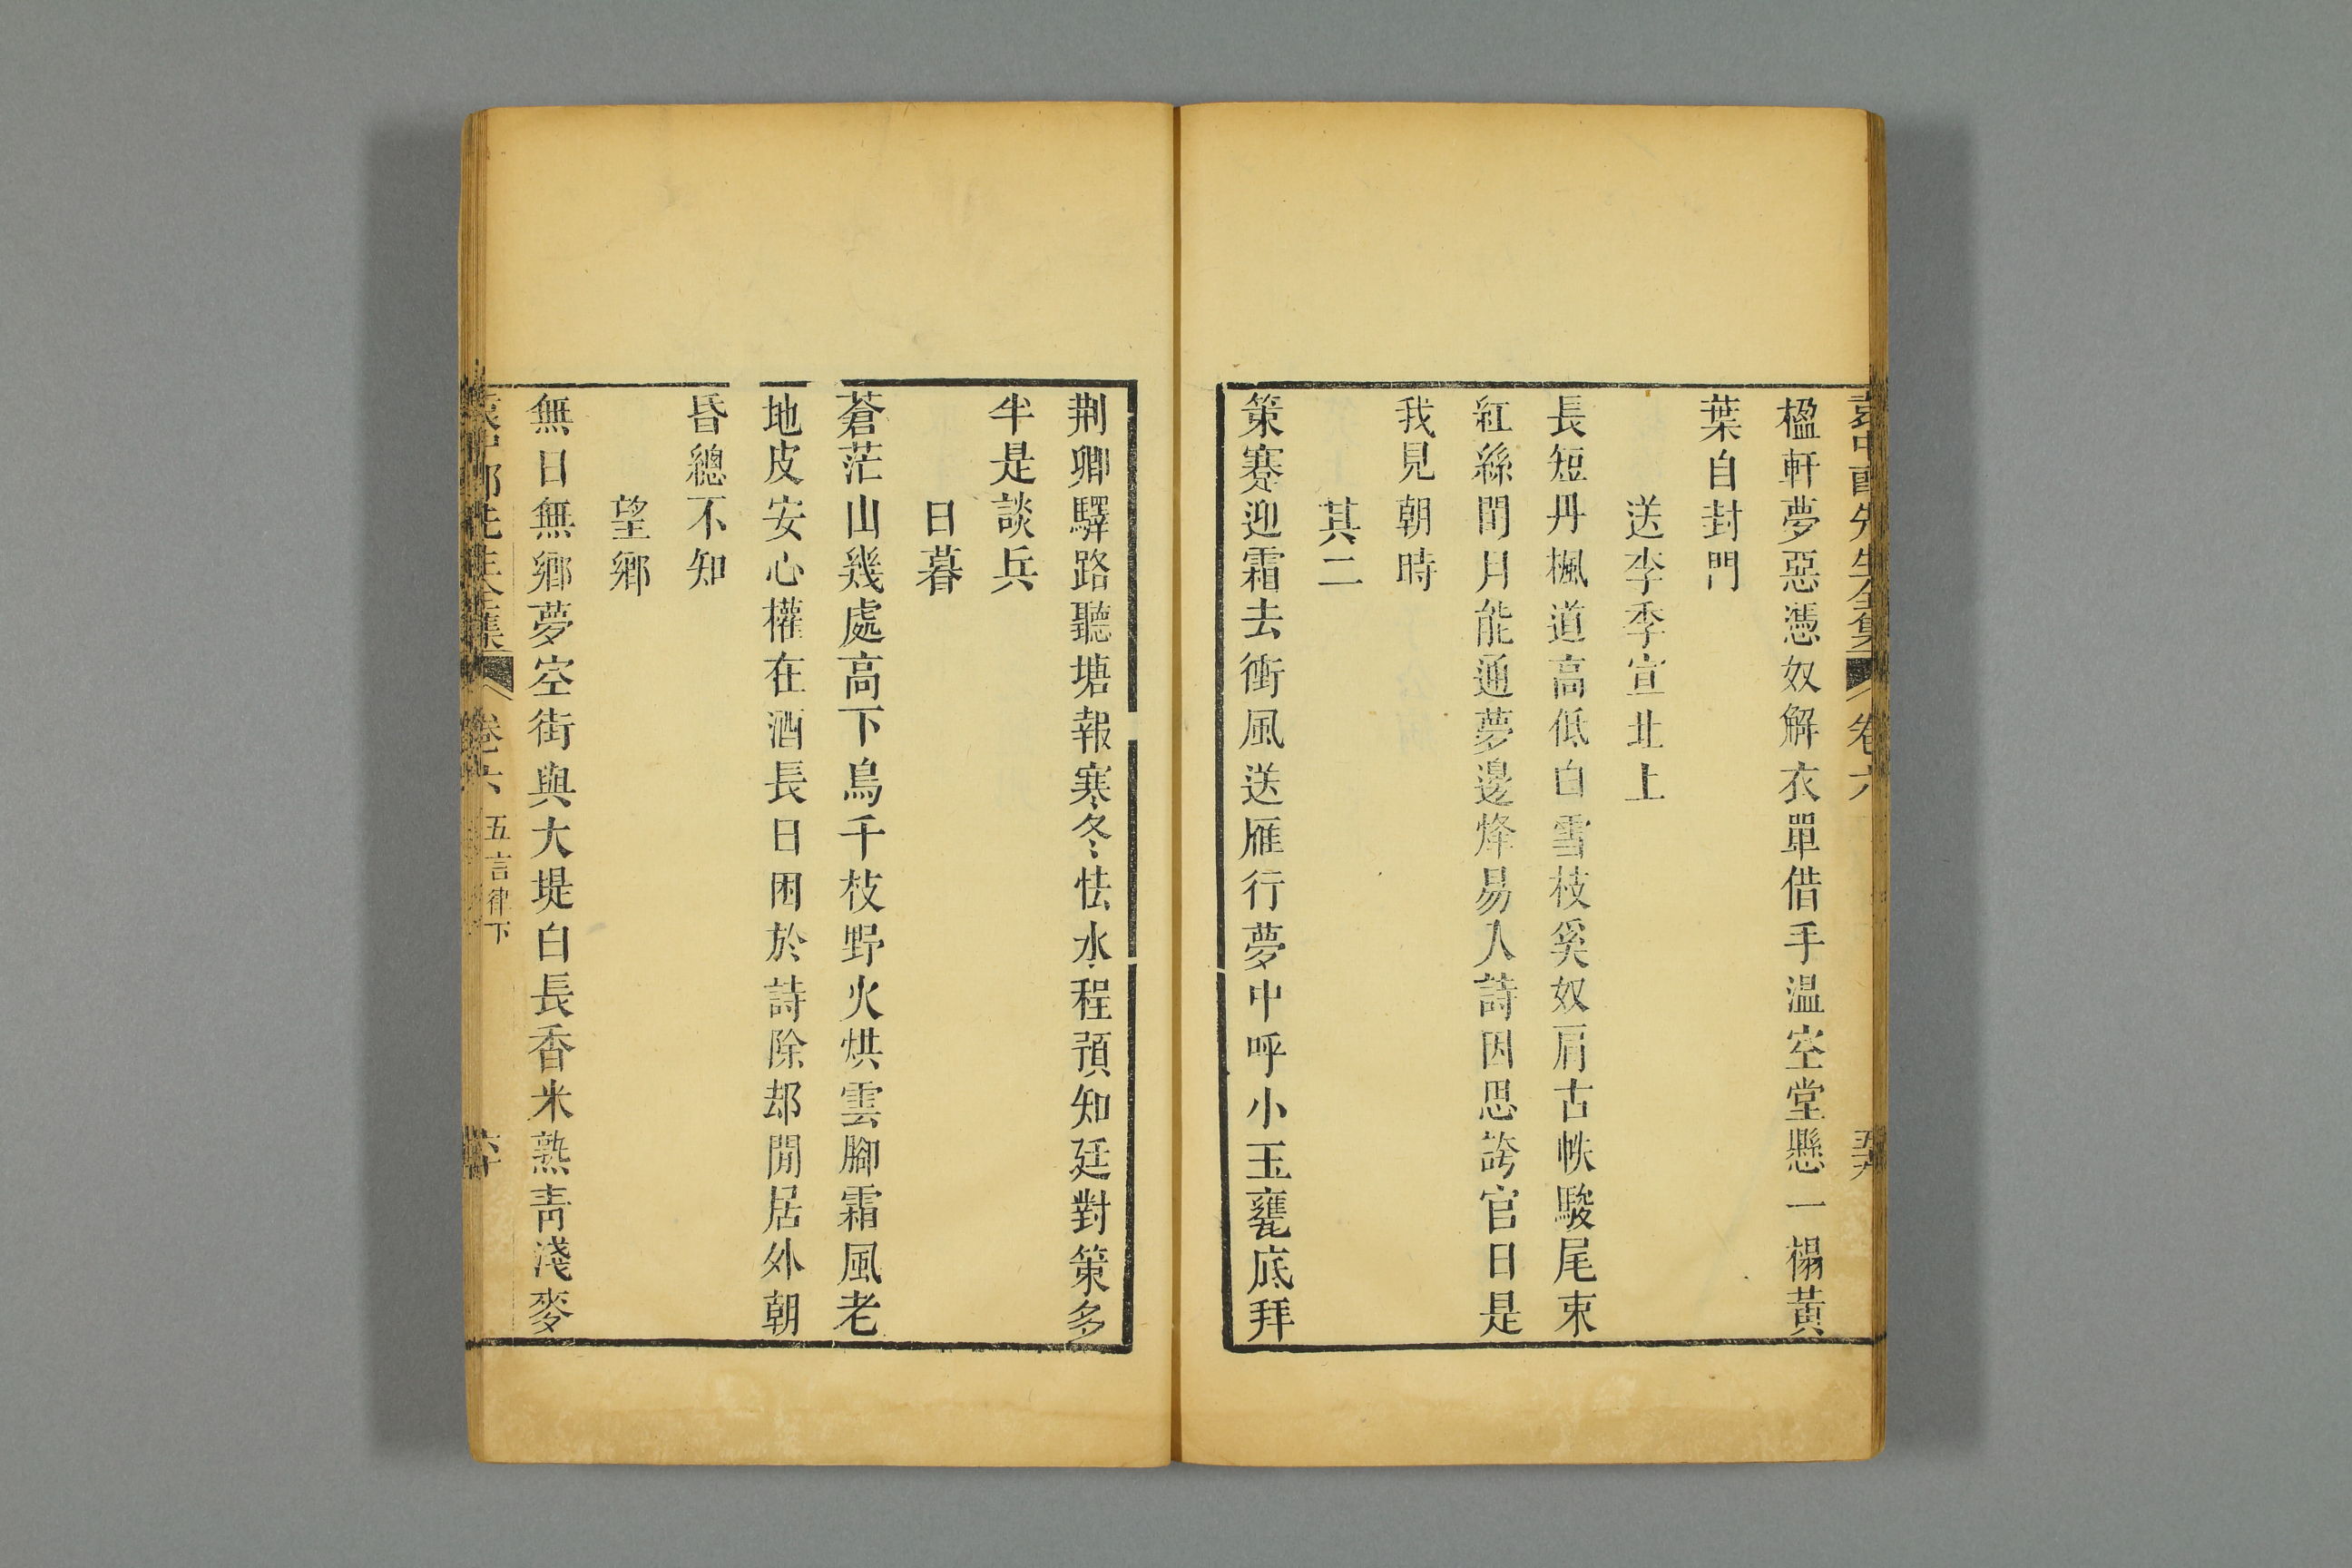 楹軒夢惡憑奴解衣單借手温空堂懸一榻黃
葉自封門
送李季宣北上
長短丹楓道高低白雪枝奚奴肩古帙駿尾束
紅絲閏月能通夢邊烽易入詩因思誇官日是
我見朝時
其二
策蹇迎霜去衝風送雁行夢中呼小玉甕底拜
荆卿驛路聽塘報寒冬怯水程預知廷對策多
半是談兵
日暮
蒼茫山幾處高下鳥千枝野火烘雲腳霜風老
地皮安心權在酒長日困於詩除却閒居外朝
昏總不知
望鄉
無日無鄉夢空街與大堤白長香米熟靑淺麥
袁中郎先生全集 卷六 五言律下 六十